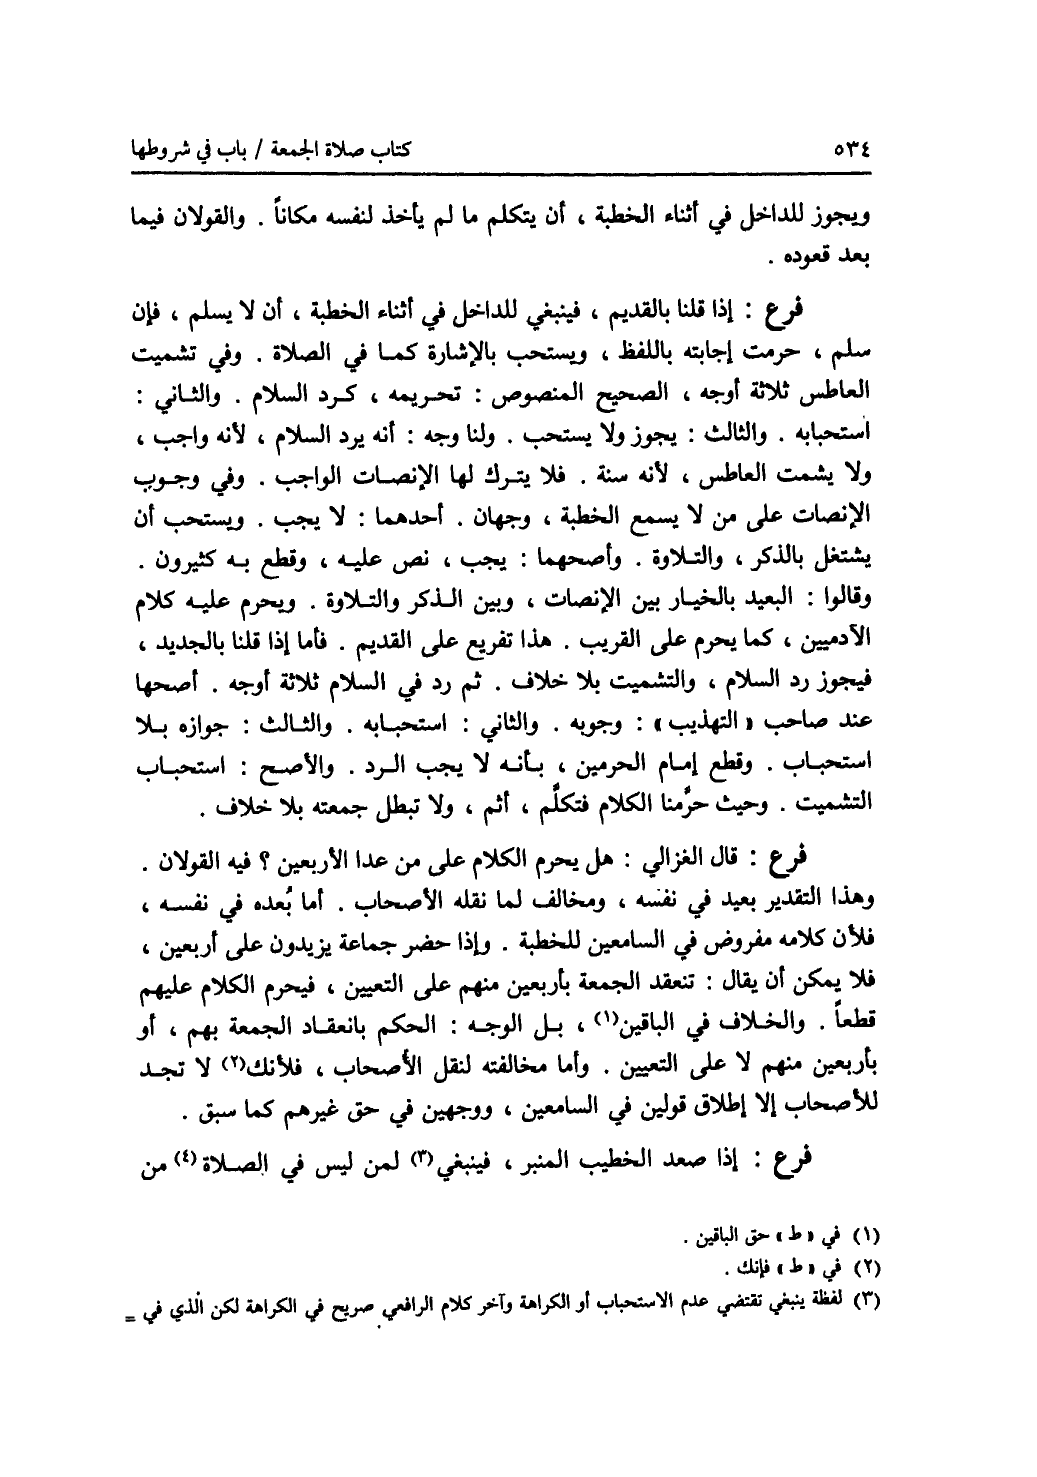 ٥٣٤ كتاب صلاة الجمعة / باب في شروطها
ويجوز للداخل في أثناء الخطبة ، أن يتكلم ما لم يأخذ لنفسه مكاناً . والقولان فيما
بعد قعوده .
فرع : إذا قلنا بالقديم ، فينبغي للداخل في أثناء الخطبة ، أن لا يسلم ، فإن
سلم ، حرمت إجابته باللفظ ، ويستحب بالإشارة كما في الصلاة . وفي تشميت
العاطس ثلاثة أوجه ، الصحيح المنصوص : تحريمه ، كرد السلام . والثاني :
استحبابه . والثالث : يجوز ولا يستحب . ولنا وجه : أنه يرد السلام ، لأنه واجب ،
ولا يشمت العاطس ، لأنه سنة . فلا يترك لها الإنصات الواجب . وفي وجوب
الإنصات على من لا يسمع الخطبة ، وجهان . أحدهما : لا يجب . ويستحب أن
يشتغل بالذكر ، والتلاوة . وأصحهما : يجب ، نص عليه ، وقطع به كثيرون .
وقالوا : البعيد بالخيار بين الإنصات ، وبين الذكر والتلاوة . ويحرم عليه كلام
الآدميين ، كما يحرم على القريب . هذا تفريع على القديم . فأما إذا قلنا بالجديد ،
فيجوز رد السلام ، والتشميت بلا خلاف . ثم رد في السلام ثلاثة أوجه . أصحها
عند صاحب « التهذيب » : وجوبه . والثاني : استحبابه . والثالث : جوازه بلا
استحباب . وقطع إمام الحرمين ، بأنه لا يجب الرد . والأصح : استحباب
التشميت . وحيث حرَّمنا الكلام فتكلَّم ، أثم ، ولا تبطل جمعته بلا خلاف .
فرع : قال الغزالي : هل يحرم الكلام على من عدا الأربعين ؟ فيه القولان .
وهذا التقدير بعيد في نفسه ، ومخالف لما نقله الأصحاب . أما بُعده في نفسه ،
فلأن كلامه مفروض في السامعين للخطبة . وإذا حضر جماعة يزيدون على أربعين ،
فلا يمكن أن يقال : تنعقد الجمعة بأربعين منهم على التعيين ، فيحرم الكلام عليهم
قطعاً . والخلاف في الباقين(١) ، بل الوجه : الحكم بانعقاد الجمعة بهم ، أو
بأربعين منهم لا على التعيين . وأما مخالفته لنقل الأصحاب ، فلأنك(٢) لا تجد
للأصحاب إلا إطلاق قولين في السامعين ، ووجهين في حق غيرهم كما سبق .
فرع : إذا صعد الخطيب المنبر ، فينبغي(٣) لمن ليس في الصلاة(٤) من
(١) في « ط » حق الباقين .
(٢) في « ط » فإنك .
(٣) لفظة ينبغي تقتضي عدم الاستحباب أو الكراهة وآخر كلام الرافعي صريح في الكراهة لكن الذي في =